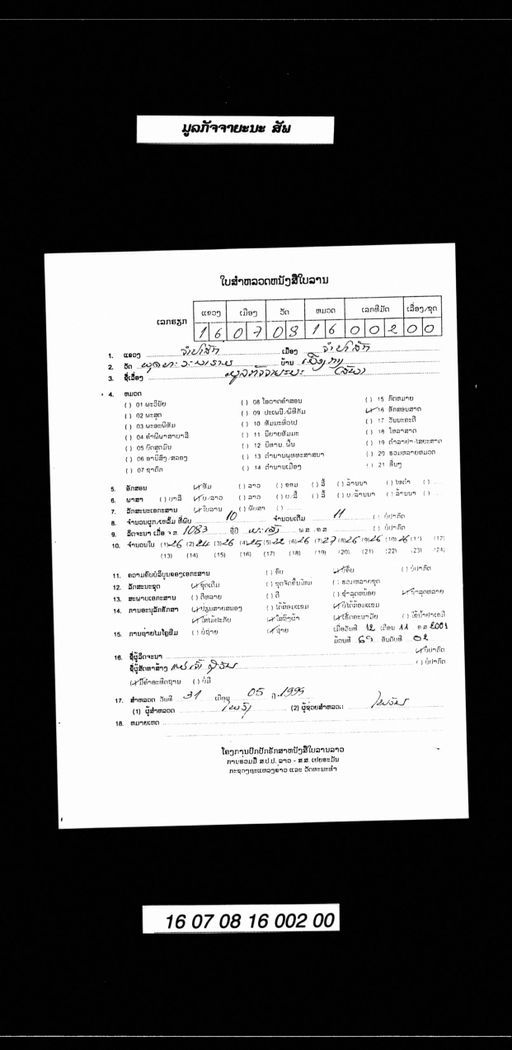 ມູລກັຈຈາຍະນະ ສັພ
ໃບສຳຫລວດຫນັງສືໃບລານ
ແຂວງ ເມືອງ ວັດ ຫມວດ ເລກທີມັດ ເລື່ອງ/ຊຸດ
ເລກຮຽກ 1 6 0 7 0 8 1 6 0 0 2 0 0
1. ແຂວງ ຈຳປາສັກ ເມືອງ ຈຳປາສັກ
2. ວັດ ບ້ານ
3. ຊື່ເລື່ອງ ມູລກັຈຈາຍະນະ (ສັພ)
4. ຫມວດ
( ) 01 ພະວິໄນ ( ) 08 ໂອວາດຄຳສອນ ( ) 15 ກົດຫມາຍ
( ) 02 ພະສູດ ( ) 09 ປະເພນີ-ພິທີກັມ (✓) 16 ອັກສອນສາດ
( ) 03 ພະອະພິທັມ ( ) 10 ທັມມະທົ່ວໄປ ( ) 17 ວັນນະຄະດີ
( ) 04 ຄຳພີພາສາບາລີ ( ) 11 ນິຍາຍທັມມະ ( ) 18 ໂຫລາສາດ
( ) 05 ບົດສູດມົນ ( ) 12 ນິທານພື້ນ ( ) 19 ຕຳລາຢາ-ໄສຍະສາດ
( ) 06 ອານິສົງ-ສລອງ ( ) 13 ຕຳນານພຸທທະສາສນາ ( ) 20 ຮວມຫລາຍຫມວດ
( ) 07 ຊາດົກ ( ) 14 ຕຳນານເມືອງ ( ) 21 ອື່ນໆ
5. ອັກສອນ (✓) ທັມ ( ) ລາວ ( ) ຂອມ ( ) ລື້ ( ) ລ້ານນາ ( ) ໄທດຳ ( )
6. ພາສາ ( ) ບາລີ (✓) ບ.ລາວ ( ) ລາວ ( ) ບ.ລື້ ( ) ລື້ ( ) ບ.ລ້ານນາ ( ) ລ້ານນາ ( )
7. ລັກສະນະເອກະສານ (✓) ໃບລານ ( ) ພັບສາ ( )
8. ຈຳນວນຜູກ/ເຫລັ້ມ ທີ່ພົບ 10 ຈຳນວນເຕັມ 11 ( ) ບໍ່ປາກົດ
9. ລິດຈະນາ ເມື່ອ ຈ.ສ. 1083 ພ.ສ. ຄ.ສ. ( ) ບໍ່ປາກົດ
10. ຈຳນວນໃບ (1) 26 (2) 24 (3) 26 (4) 25 (5) 22 (6) 26 (7) 27 (8) 26 (9) 26 (10) 26 (11) (12)
(13) (14) (15) (16) (17) (18) (19) (20) (21) (22) (23) (24)
11. ຄວາມຄົບບໍລິບູນຂອງເອກະສານ ( ) ຄົບ (✓) ບໍ່ຄົບ ( ) ບໍ່ປາກົດ
12. ລັກສະນະຊຸດ (✓) ຊຸດເດີມ ( ) ຊຸດຈັດຂຶ້ນໃຫມ່ ( ) ຮວມຫລາຍຊຸດ
13. ສະພາບເອກະສານ ( ) ດີຫລາຍ ( ) ດີ ( ) ຊຳລຸດຫນ້ອຍ (✓) ຊຳລຸດຫລາຍ
14. ການອະນຸລັກຮັກສາ (✓) ປ່ຽນສາຍສນອງ ( ) ໄດ້ສ້ອມແຊມ (✓) ບໍ່ໄດ້ສ້ອມແຊມ
15. ການຖ່າຍໄມໂຄຼຟີມ ( ) ບໍ່ຖ່າຍ (✓) ຖ່າຍ ເມື່ອວັນທີ 12 ເດືອນ 11 ຄ.ສ. 2001
ມ້ວນທີ 69 ອັນດັບທີ 02
16. ຊື່ຜູ້ລິດຈະນາ (✓) ບໍ່ປາກົດ
ຊື່ຜູ້ສັດທາສ້າງ ( ) ບໍ່ປາກົດ
(✓) ມີຄຳອະທິດຖານ ( ) ບໍ່ມີ
17. ສຳຫລວດ ວັນທີ 31 ເດືອນ 05 ປີ 1999
(1) ຜູ້ສຳຫລວດ (2) ຜູ້ຊ່ວຍສຳຫລວດ
18. ຫມາຍເຫດ
ໂຄງການປົກປັກຮັກສາຫນັງສືໃບລານລາວ
ການຮ່ວມມື ສ.ປ.ປ. ລາວ - ສ.ສ. ເຢຍຣະມັນ
ກະຊວງຖະແຫລງຂ່າວ ແລະ ວັດທະນະທຳ
16 07 08 16 002 00